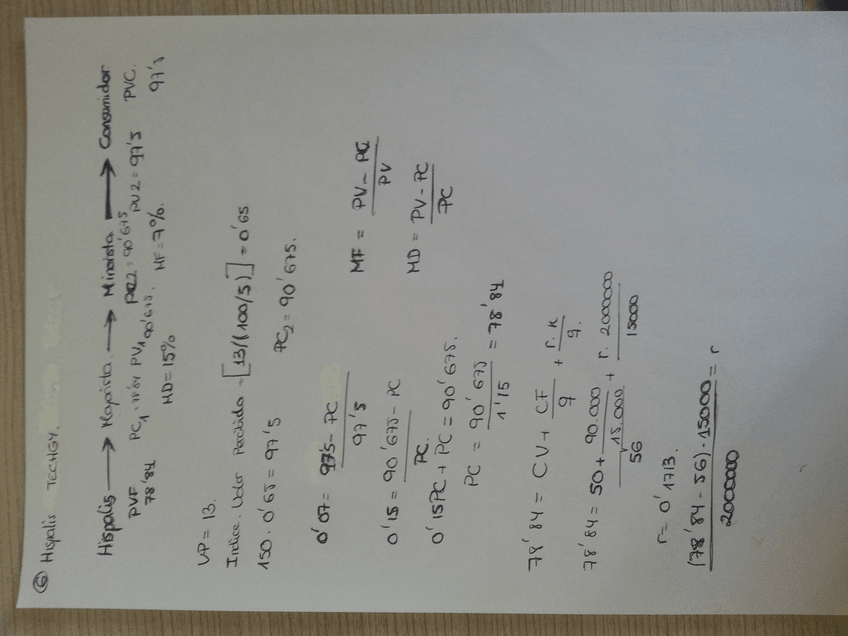 6 Hispalis TECHGY.
Hispalis → Mayorista. → Minorista → Consumidor
PVF PC1 = 78'84 PV1 90'675. PC2 = 90'675 PV2 = 97'5 PVC.
78'84 MD = 15% MF = 7%. 97'5
VP = 13.
Indice. Valor Percibido = [13/(100/5)] = 0'65
150 · 0'65 = 97'5 PC2 = 90'675.
0'07 = 97'5 - PC / 97'5
MF = PV - PC / PV
0'15 = 90'675 - PC / PC.
MD = PV - PC / PC
0'15PC + PC = 90'675.
PC = 90'675 / 1'15 = 78'84
78'84 = CV + CF / q + r. k / q.
78'84 = 50 + 90.000 / 15.000 + r. 2000000 / 15000
56
r = 0'1713.
(78'84 - 56) · 15000 / 2000000 = r